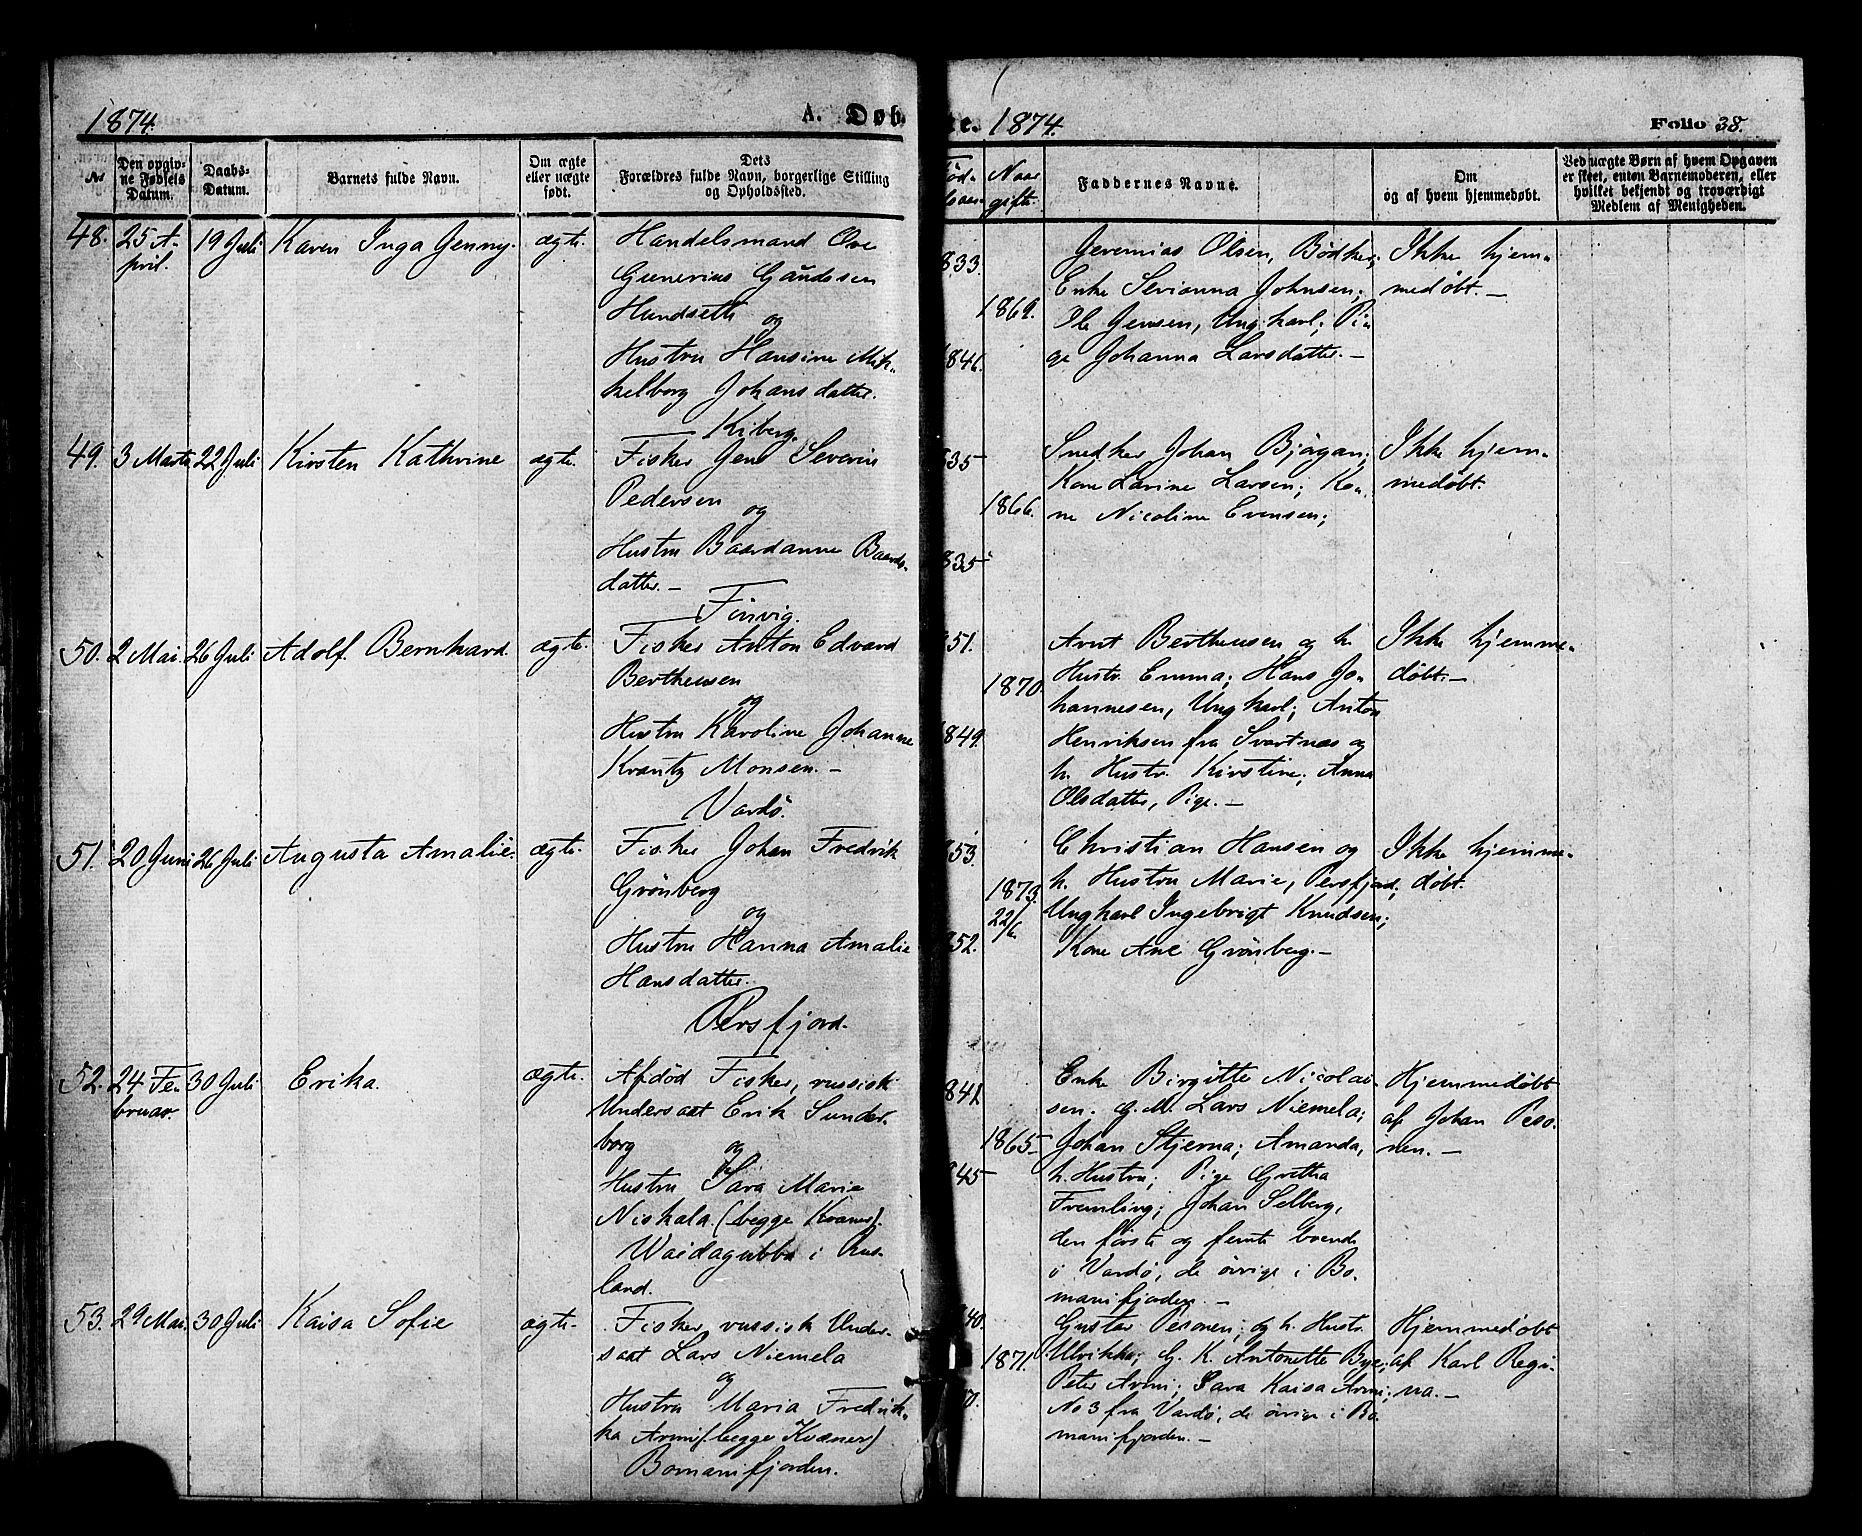 1874.
A. Døb-
te. 1874.
Folio 38.
No
Den opgiv-
ne Fødsels
Datum.
Daabs-
Datum.
Barnets fulde Navn.
Om ægte
eller uægte
født.
Dets
Forældres fulde Navn, borgerlige Stilling
og Opholdssted.
Naar
gifte.
Faddernes Navne.
Om
og af hvem hjemmedøbt.
Ved uægte Børn af hvem Opgaven
er skeet, enten Barnemoderen, eller
hvilket bekjendt og troværdigt
Medlem af Menigheden.
48. 25 A-
pril.
19 Juli
Karen Inga Jenny.
ægte.
Handelsmand Ove
Gunerius Gaudesen
Hundseth
og
Hustru Hansine Mik-
kelborg Johansdatter.
Kiberg.
833.
1869.
1846.
Jeremias Olsen, Bødker;
Enke Sevianna Johnsen;
Ole Jensen, Ungkarl; Pi-
ge Johanna Larsdatter. -
Ikke hjem-
medøbt. -
49. 3 Marts 22 Juli
Kirsten Kathrine
ægte.
Fisker Jens Severin
Pedersen
og
Hustru Baardanne Baards-
datter. -
Finvig.
835
1866.
835
Snedker Johan Bjågan;
Kone Lavine Larsen; Ko-
ne Nicoline Evensen;
Ikke hjem-
medøbt.
50. 2 Mai. 26 Juli
Adolf Bernhard.
ægte.
Fisker Anton Edvard
Bertheusen
og
Hustru Karoline Johanne
Krantz Monsen. -
Vardö.
851.
1870.
849.
Arnt Bertheusen og h.
Hustr. Emma; Hans Jo-
hannesen, Ungkarl; Anton
Henriksen fra Svartnæs og
h. Hustr. Kirstine; Anna
Olsdatter, Pige. -
Ikke hjemme-
døbt. -
51. 20 Juni 26 Juli
Augusta Amalie.
ægte.
Fisker Johan Fredrik
Grönberg
og
Hustru Hanna Amalie
Hansdatter.
Persfjord.
853.
1873.
22/6.
852.
Christian Hansen og
h. Hustru Marie, Persfjord;
Ungkarl Ingebrigt Knudsen;
Kone Ane Grönberg. -
Ikke hjemme-
døbt.
52. 24 Fe-
bruar.
30 Juli
Erika.
ægte.
Afdød Fisker, russisk
Undersaat Erik Sunder-
borg
og
Hustru Sara Marie
Niskala (begge Kvæner).
Waidagubba i Rus-
land.
841.
1865
845
Enke Birgitte Nicolai-
sen. G. M. Lars Niemela;
Johan Stjerna; Amanda,
h. Hustru; Pige Gretha
Fremling; Johan Selberg,
den første og femte boende
i Vardö, de øvrige i Bo-
manifjorden. -
Hjemmedøbt
af Johan Peso-
nen. -
53. 29 Mai. 30 Juli
Kaisa Sofie
ægte.
Fisker, russisk Under-
saat Lars Niemela
og
Hustru Maria Fredrik-
ka Armi (begge Kvæner)
Bomanifjorden.
840.
1871.
Gustav Pesonen; og h. Hustr.
Ulrikka; G. K. Antonette Bye;
Peter Armi; Sara Kaisa Armi;
No 3 fra Vardö, de øvrige i Bo-
manifjorden. -
Hjemmedøbt
af Karl Regi-
na. -